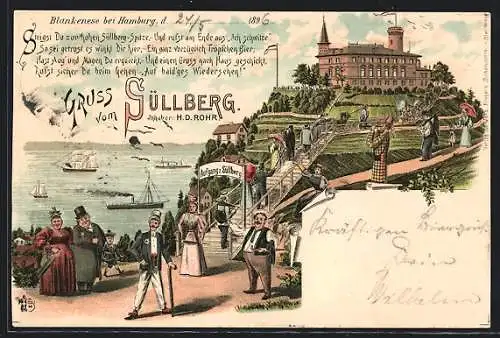 Blankenese bei Hamburg, d. 24/5 1896
Steigst Du zur hohen Süllberg-Spitze, Und rufst am Ende aus „Ich schwitze"
So sei getrost es winkt Dir hier, Ein ganz vorzüglich Tröpfchen Bier;
Hast Aug' und Magen Du erquickt, Und einen Gruss nach Haus geschickt,
Rufst sicher Du beim Gehen: „Auf bald'ges Wiedersehen!"
Gruss vom Süllberg.
Inhaber: H.D. ROHR.
Aufgang z. Süllberg
Kräftigen Biergruß
Dein
Wilhelm